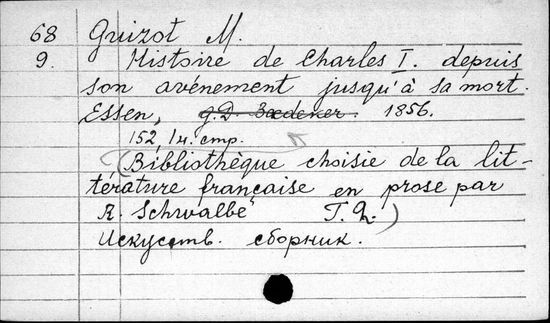 68 Guizot M.
9. Histoire de Charles I. depuis
son avénement jusqu'à sa mort.
Essen, G.D. Bædeker. 1856.
152, стр.
(Bibliothèque choisie de la lit-
térature française en prose par
R. Schwalbé" T. )
Искусств. сборник.